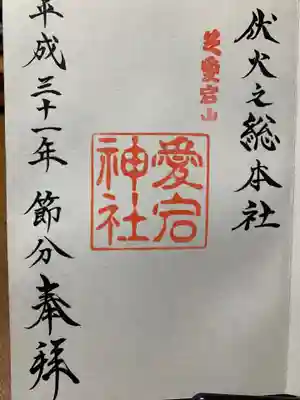 伏火之総本社
芝愛宕山
愛宕
神社
平成三十一年 節分 奉拝